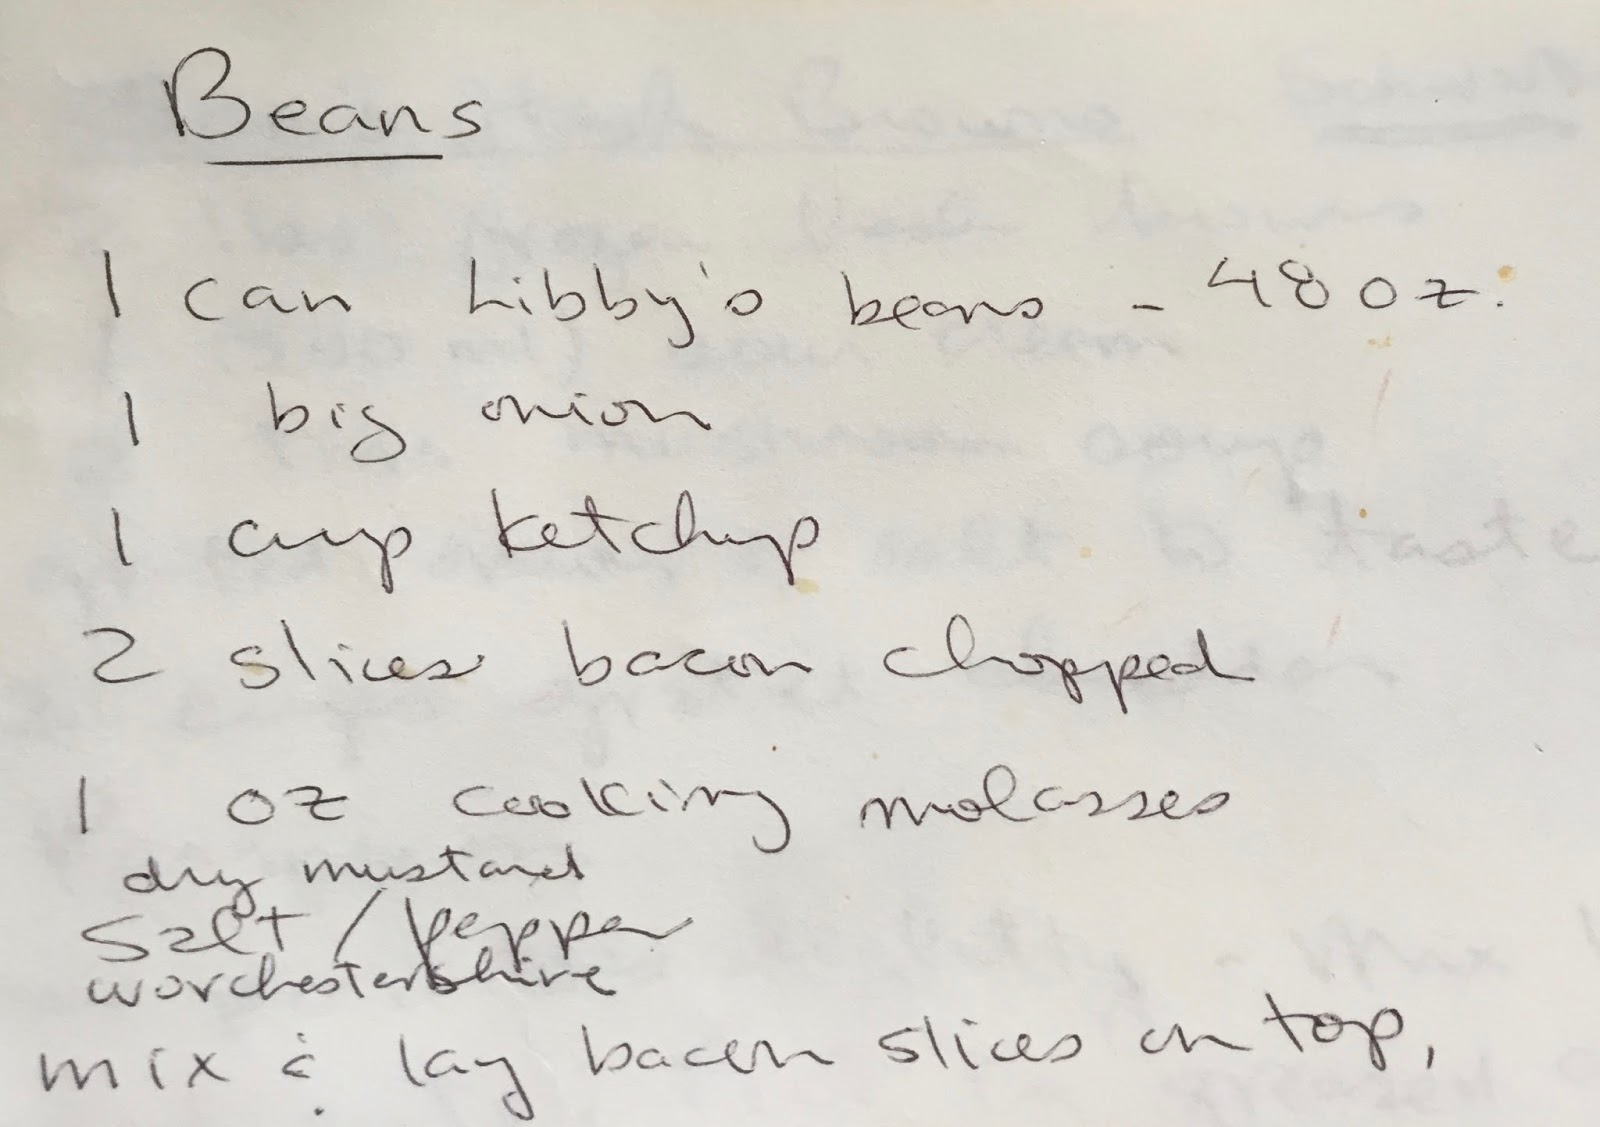 Beans
1 can Libby's beans - 48 oz.
1 big onion
1 cup ketchup
2 slices bacon chopped
1 oz cooking molasses
dry mustard
Salt / pepper
worchestershire
mix & lay bacon slices on top,